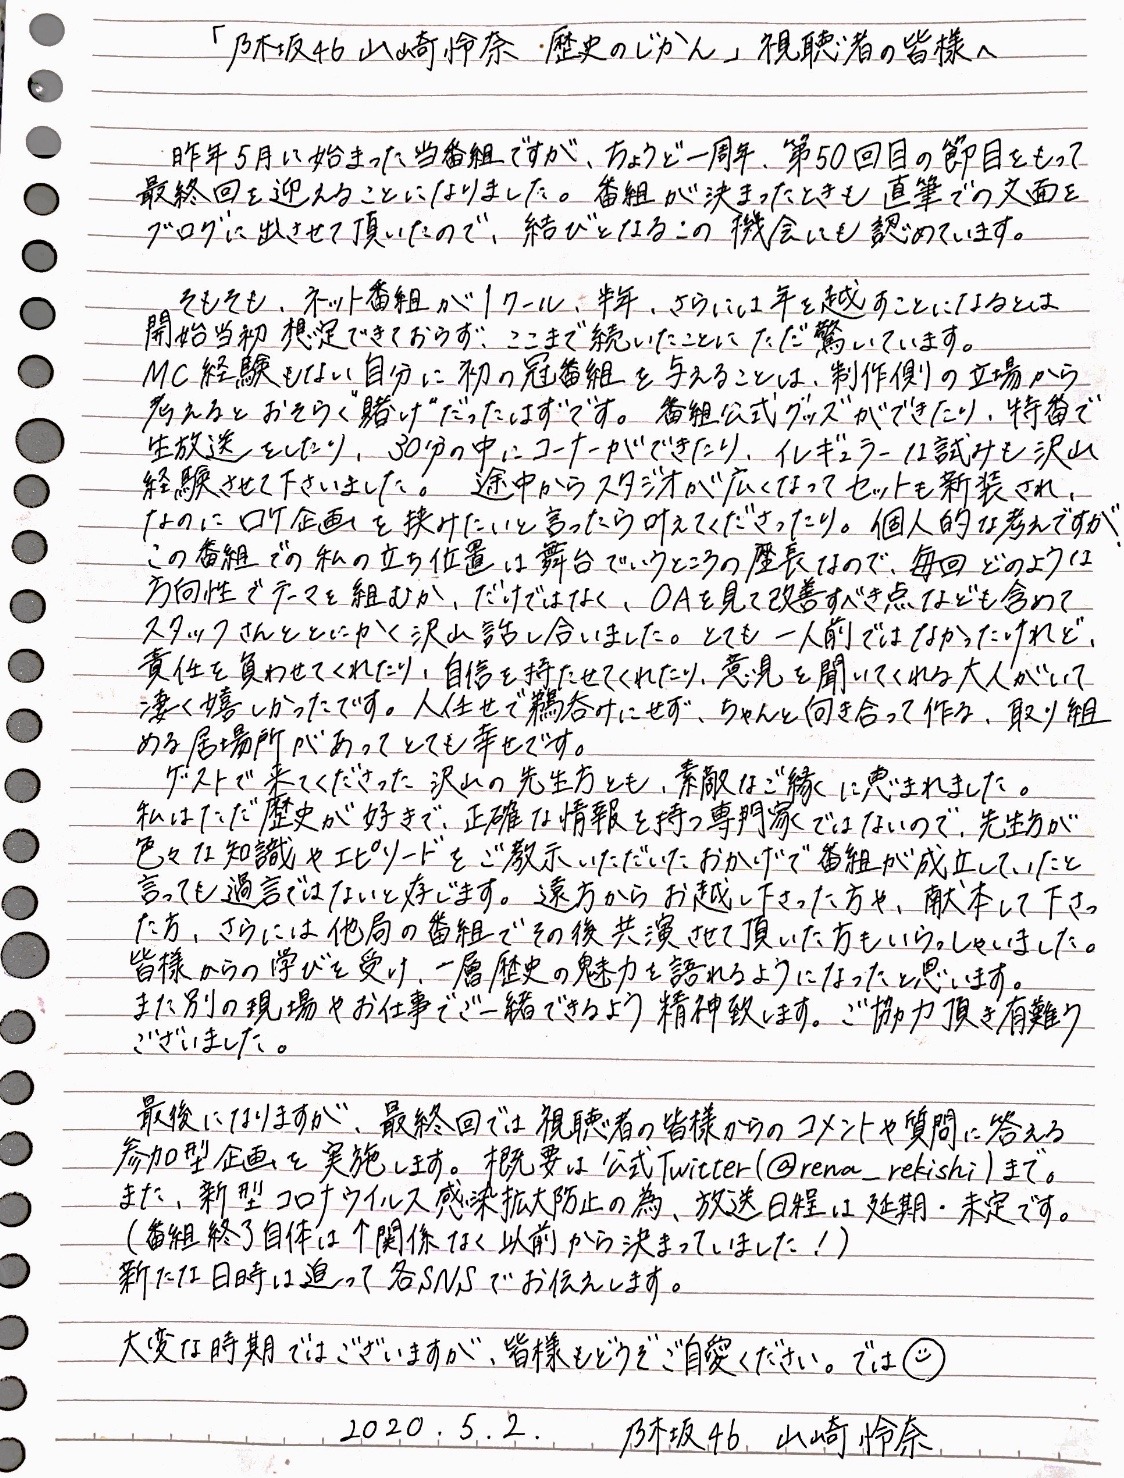 「乃木坂46 山崎怜奈 歴史のじかん」視聴者の皆様へ
昨年5月に始まった当番組ですが、ちょうど一周年、第50回目の節目をもって
最終回を迎えることになりました。番組が決まったときも直筆での文面を
ブログに出させて頂いたので、結びとなるこの機会にも認めています。
そもそも、ネット番組が1クール、半年、さらには年を越すことになるとは
開始当初想定できておらず、ここまで続いたことにただ驚いています。
MC経験もない自分に初の冠番組を与えることは、制作側の立場から
考えるとおそらく"賭け"だったはずです。番組公式グッズができたり、特番で
生放送をしたり、30分の中にコーナーができたり、イレギュラーな試みも沢山
経験させて下さいました。途中からスタジオが広くなってセットも新装され、
なのにロケ企画を挟みたいと言ったら叶えてくださったり。個人的な考えですが、
この番組での私の立ち位置は舞台でいうところの座長なので、毎回どのような
方向性でテーマを組むか、だけではなく、OAを見て改善すべき点なども含めて
スタッフさんととにかく沢山話し合いました。とても一人前ではなかったけれど、
責任を負わせてくれたり、自信を持たせてくれたり、意見を聞いてくれる大人がいて
凄く嬉しかったです。人任せで鵜呑みにせず、ちゃんと向き合って作る、取り組
める居場所があってとても幸せです。
ゲストで来てくださった沢山の先生方とも、素敵なご縁に恵まれました。
私はただ歴史が好きで、正確な情報を持つ専門家ではないので、先生方が
色々な知識やエピソードをご教示いただいたおかげで番組が成立していたと
言っても過言ではないと存じます。遠方からお越し下さった方や、献本して下さっ
た方、さらには他局の番組でその後共演させて頂いた方もいらっしゃいました。
皆様からの学びを受け、一層歴史の魅力を語れるようになったと思います。
また別の現場やお仕事でご一緒できるよう精神致します。ご協力頂き有難う
ございました。
最後になりますが、最終回では視聴者の皆様からのコメントや質問に答える
参加型企画を実施します。概要は公式Twitter(@rena_rekishi)まで。
また、新型コロナウイルス感染拡大防止の為、放送日程は延期・未定です。
(番組終了自体は↑関係なく以前から決まっていました!)
新たな日時は追って各SNSでお伝えします。
大変な時期ではございますが、皆様もどうぞご自愛ください。では☺
2020.5.2. 乃木坂46 山崎怜奈